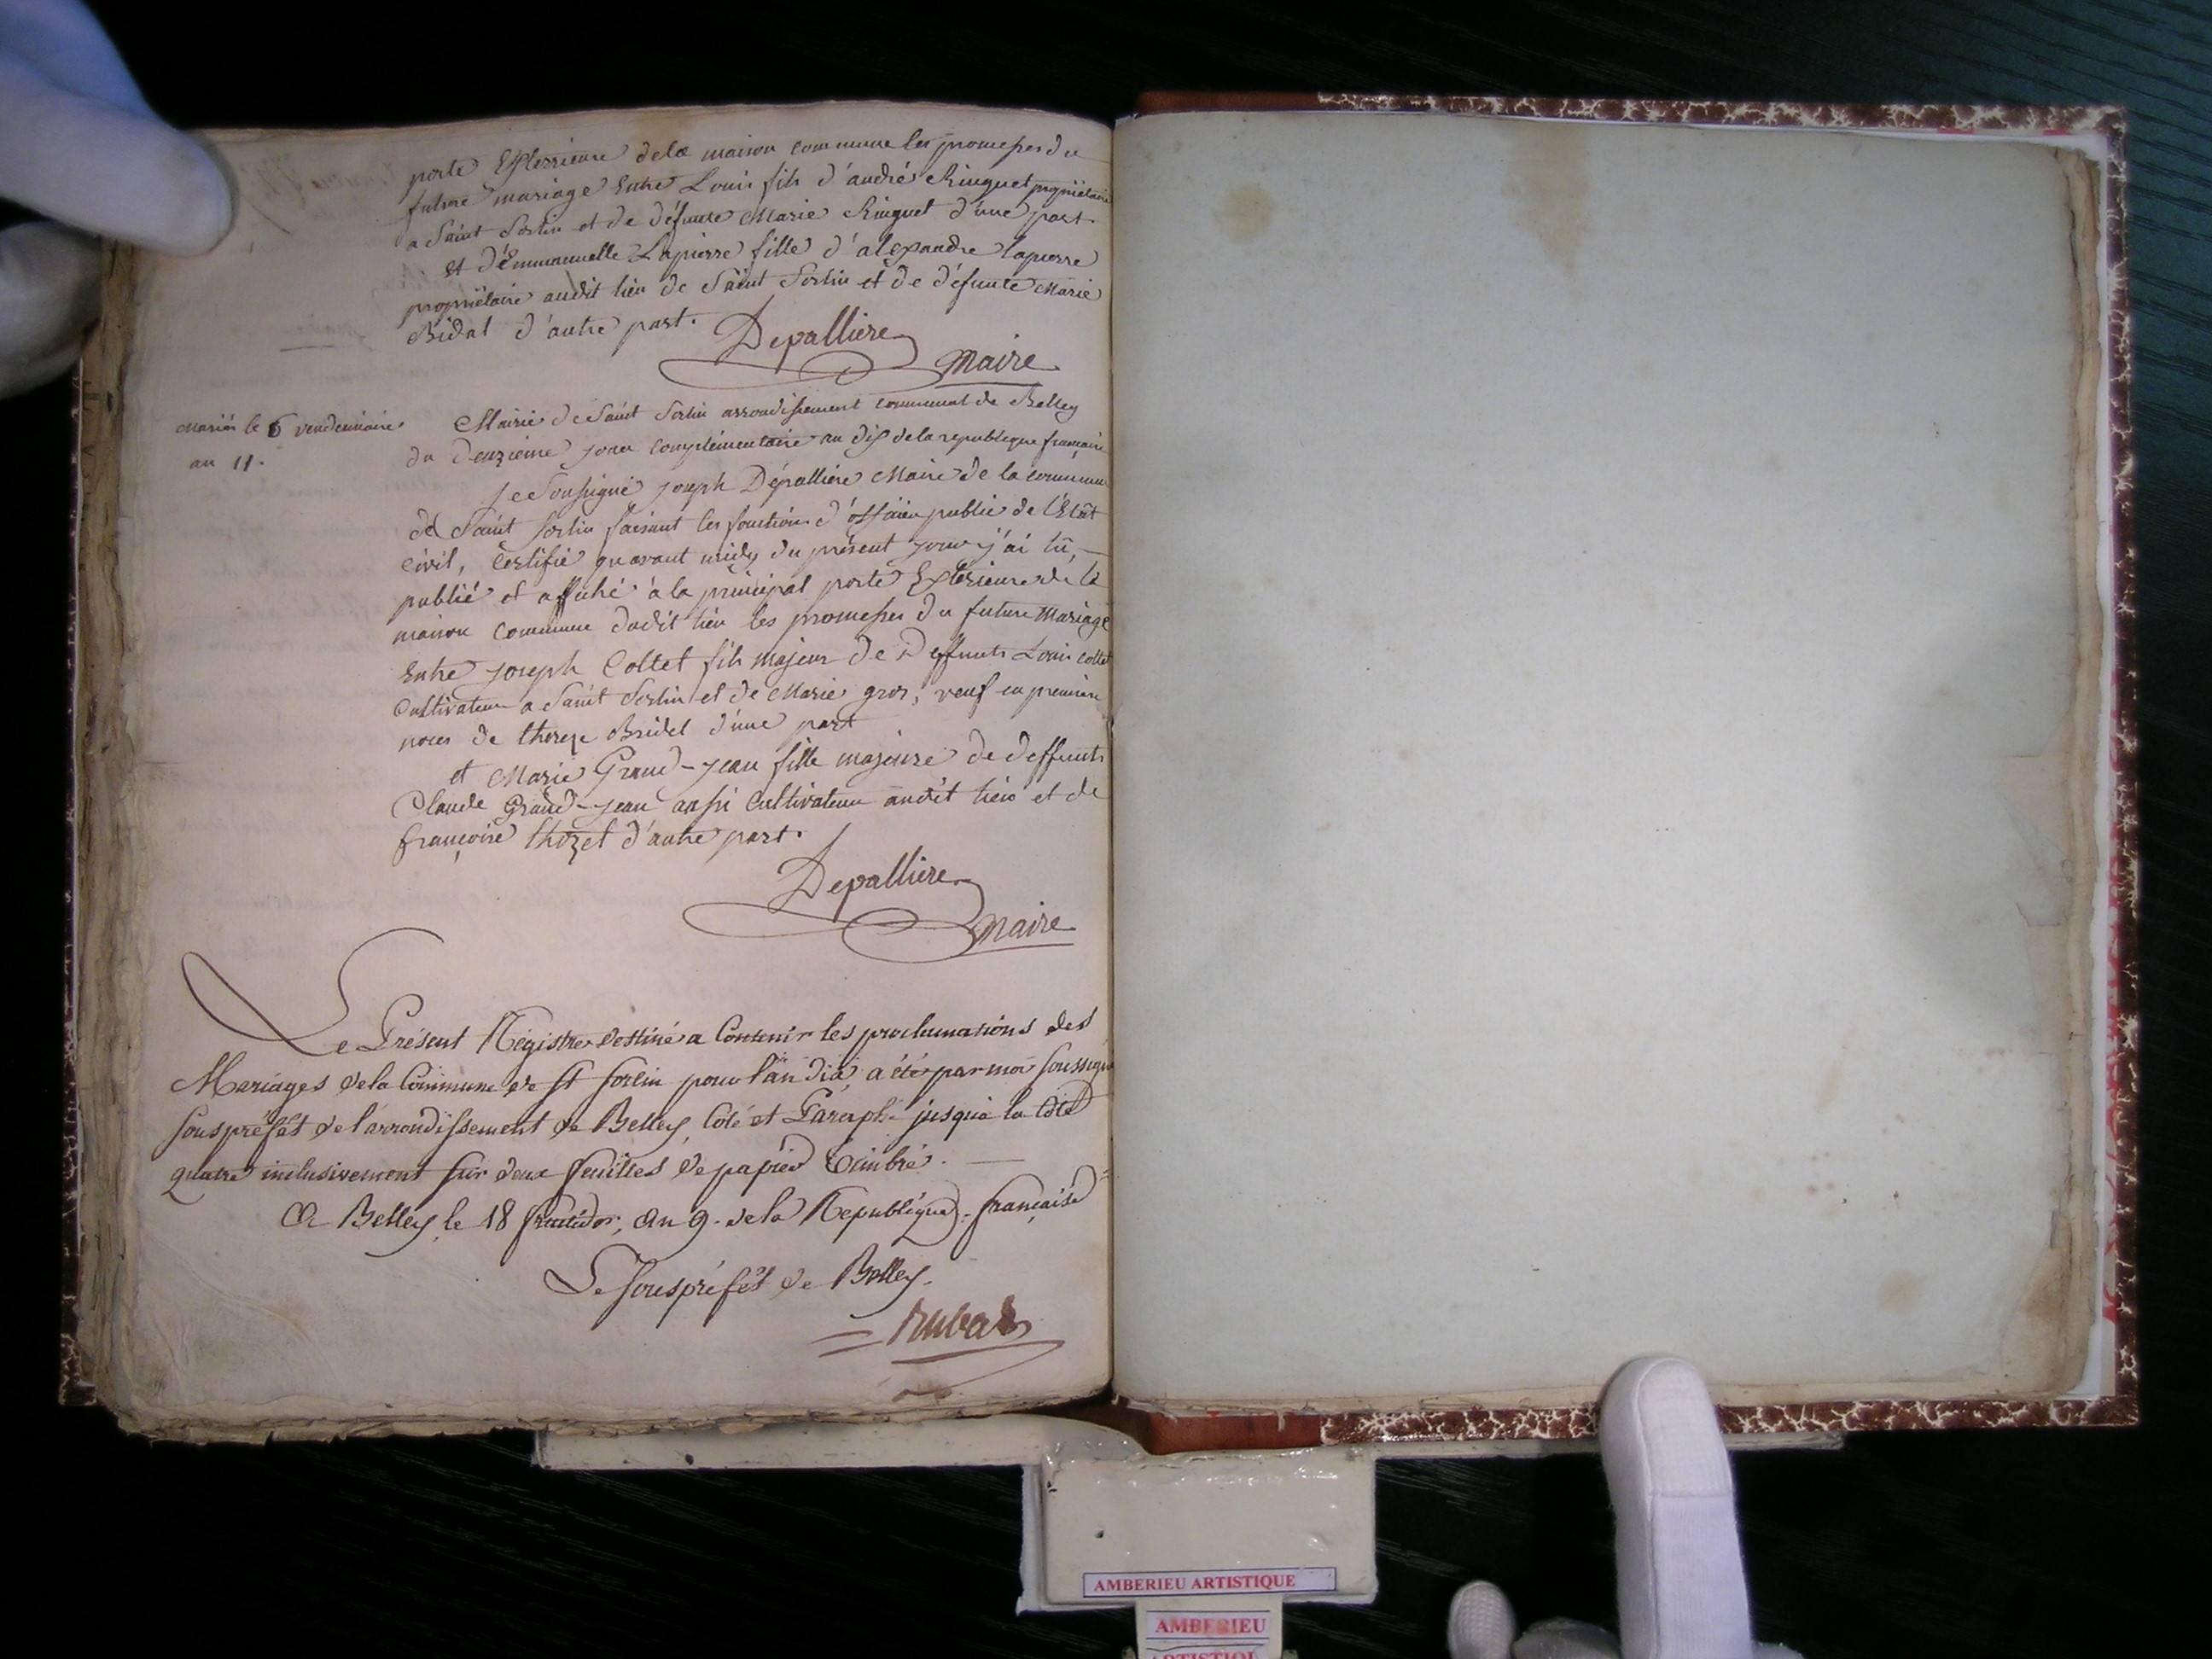 porte Extterrieure dela maison commune les promesses du
future mariage Entre Louis fils d'andré Ringuet propriétaire
a Saint Sorlin et de défunte Marie Ringuet d'une part
et d'Emmanuelle Lapierre fille d'alexandre lapierre
propriétaire audit lieu de Saint Sorlin et de défunte Marie
Bidal d'autre part.
Depalliere
Maire
mariés le 6 vendemiaire
an 11.
Mairie de Saint Sorlin arrondissement communal de Belley
du deuzieme jour complémentaire an dix de la republique francaise
Je Soussigné joseph Dépalliere Maire de la commune
de Saint Sorlin faisant les fonctions d'officier public de l'Etat
civil, certifie qu'avant midy du présent jour j'ai lû,
publié et affiché à la principal porte Extérieure de la
maison commune dudit lieu les promesses du future Mariage
Entre joseph Collet fils majeur de deffunts Louis collet
Cultivateur a Saint Sorlin et de Marie gros, veuf en premiere
noces de therese Bridel d'une part
et Marie Grand-jean fille majeure de deffunts
Claude Grand-jean aussi Cultivateur audit lieu et de
françoise thozet d'autre part.
Depalliere
Maire
Le Présent Régistre destiné a Contenir les proclamasions des
Mariages dela Commune de St Sorlin pour l'an dix, a été par moi soussigné
souspréfét de l'arrondissement de Belley, Coté et Paraphé jusqu'a la Côte
quatre inclusivement sur deux feuilles de papier timbré.
A Belley, le 18 fructidor, an 9. de la République française
Le souspréfét de Belley.
Rubat
AMBERIEU ARTISTIQUE
AMBERIEU
ARTISTIQUE